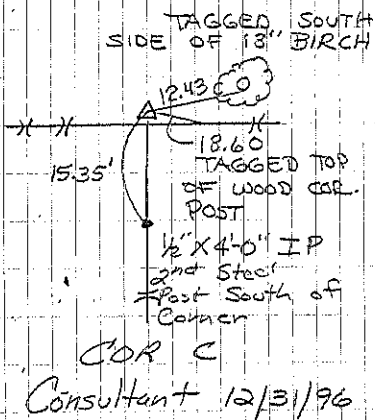 TAGGED SOUTH
SIDE OF 13" BIRCH
12.43
18.60
TAGGED TOP
OF WOOD COR.
POST
15.35'
½" X 4'-0" IP
2nd Steel
Post South of
Corner
COR C
Consultant 12/31/96